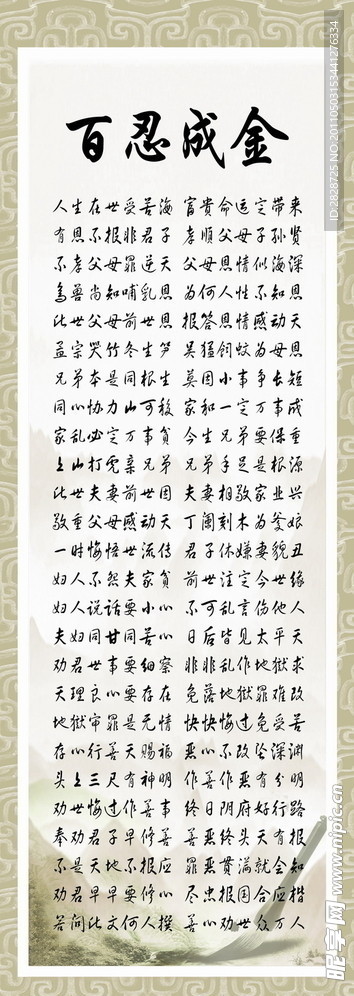 百忍成金
人生在世受苦海 富贵命运定带来
有恩不报非君子 孝顺父母子孙贤
不孝父母罪逆天 父母恩情似海深
鸟兽尚知哺乳恩 为何人性不知恩
此世父母前世恩 报答恩情感动天
孟宗哭竹冬生笋 吴猛饲蚊为母恩
兄弟本是同根生 莫因小事争长短
同心协力山可移 家和一定万事成
家乱必定万事贫 今生兄弟要保重
上山打虎亲兄弟 兄弟手足是根源
此世夫妻前世因 夫妻相敬家业兴
敬重父母感动天 丁阑刻木为爹娘
一时悔悟世流传 君子休嫌妻貌丑
妇人不怨夫家贫 前世注定今世缘
妇人说话要小心 不可乱言伤他人
夫妇同甘同苦心 日后皆见太平天
劝君世事要细察 非非乱作地狱求
天理良心要存在 免落地狱罪难改
地狱审罪是无情 快快悔过免受苦
存心行善天赐福 恶心不改坠深渊
头上三尺有神明 作善作恶有分明
劝世悔过作善事 终日阴府好行路
奉劝君子早修善 善恶终头天有报
不是天地不报应 善恶贯满就会知
劝君早早要修心 尽忠报国合应楷
若问此文何人撰 善心劝世众万人
昵享网 www.nipic.cn
ID:2828725 NO:20110503153441276334